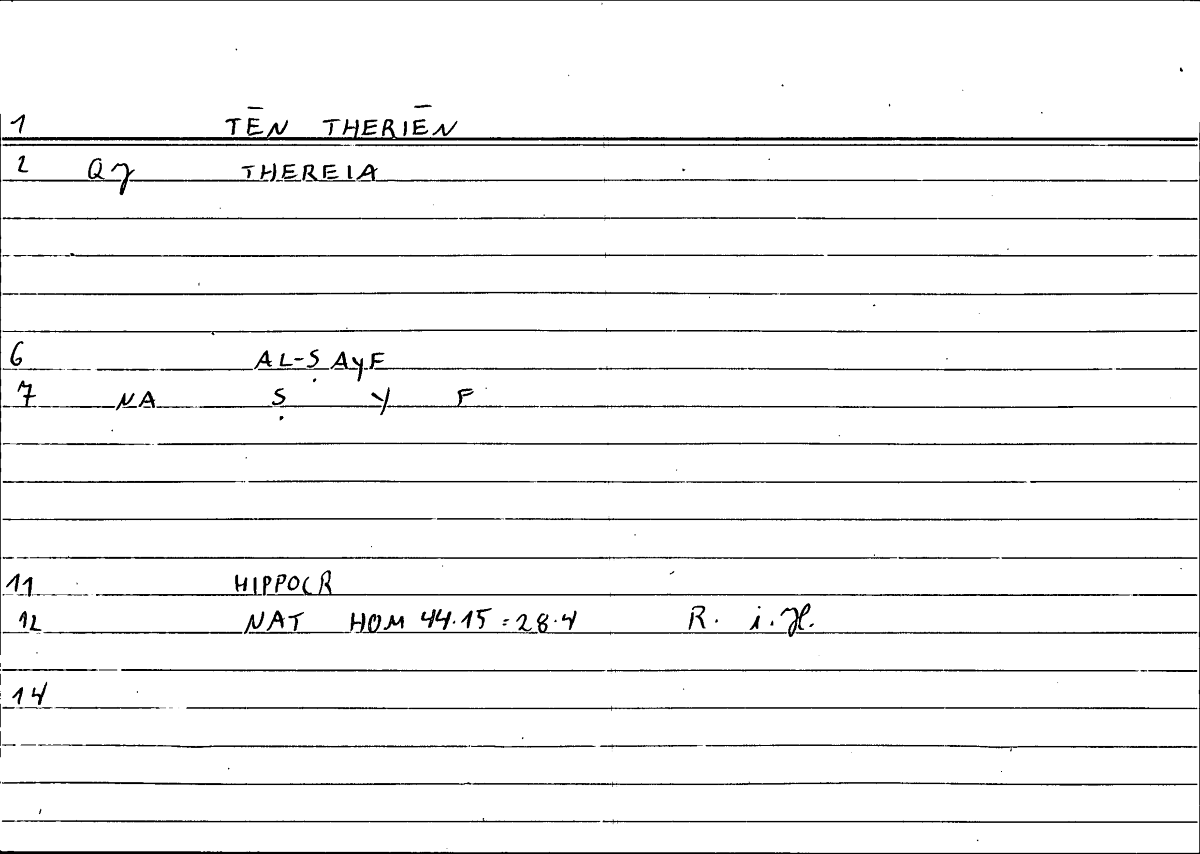 1 TĒN THERIĒN
2 Qγ THEREIA
6 AL-ṢAyF
7 NA Ṣ Y F
11 HIPPOCR
12 NAT HOM 44.15 = 28.4 R. i.H.
14